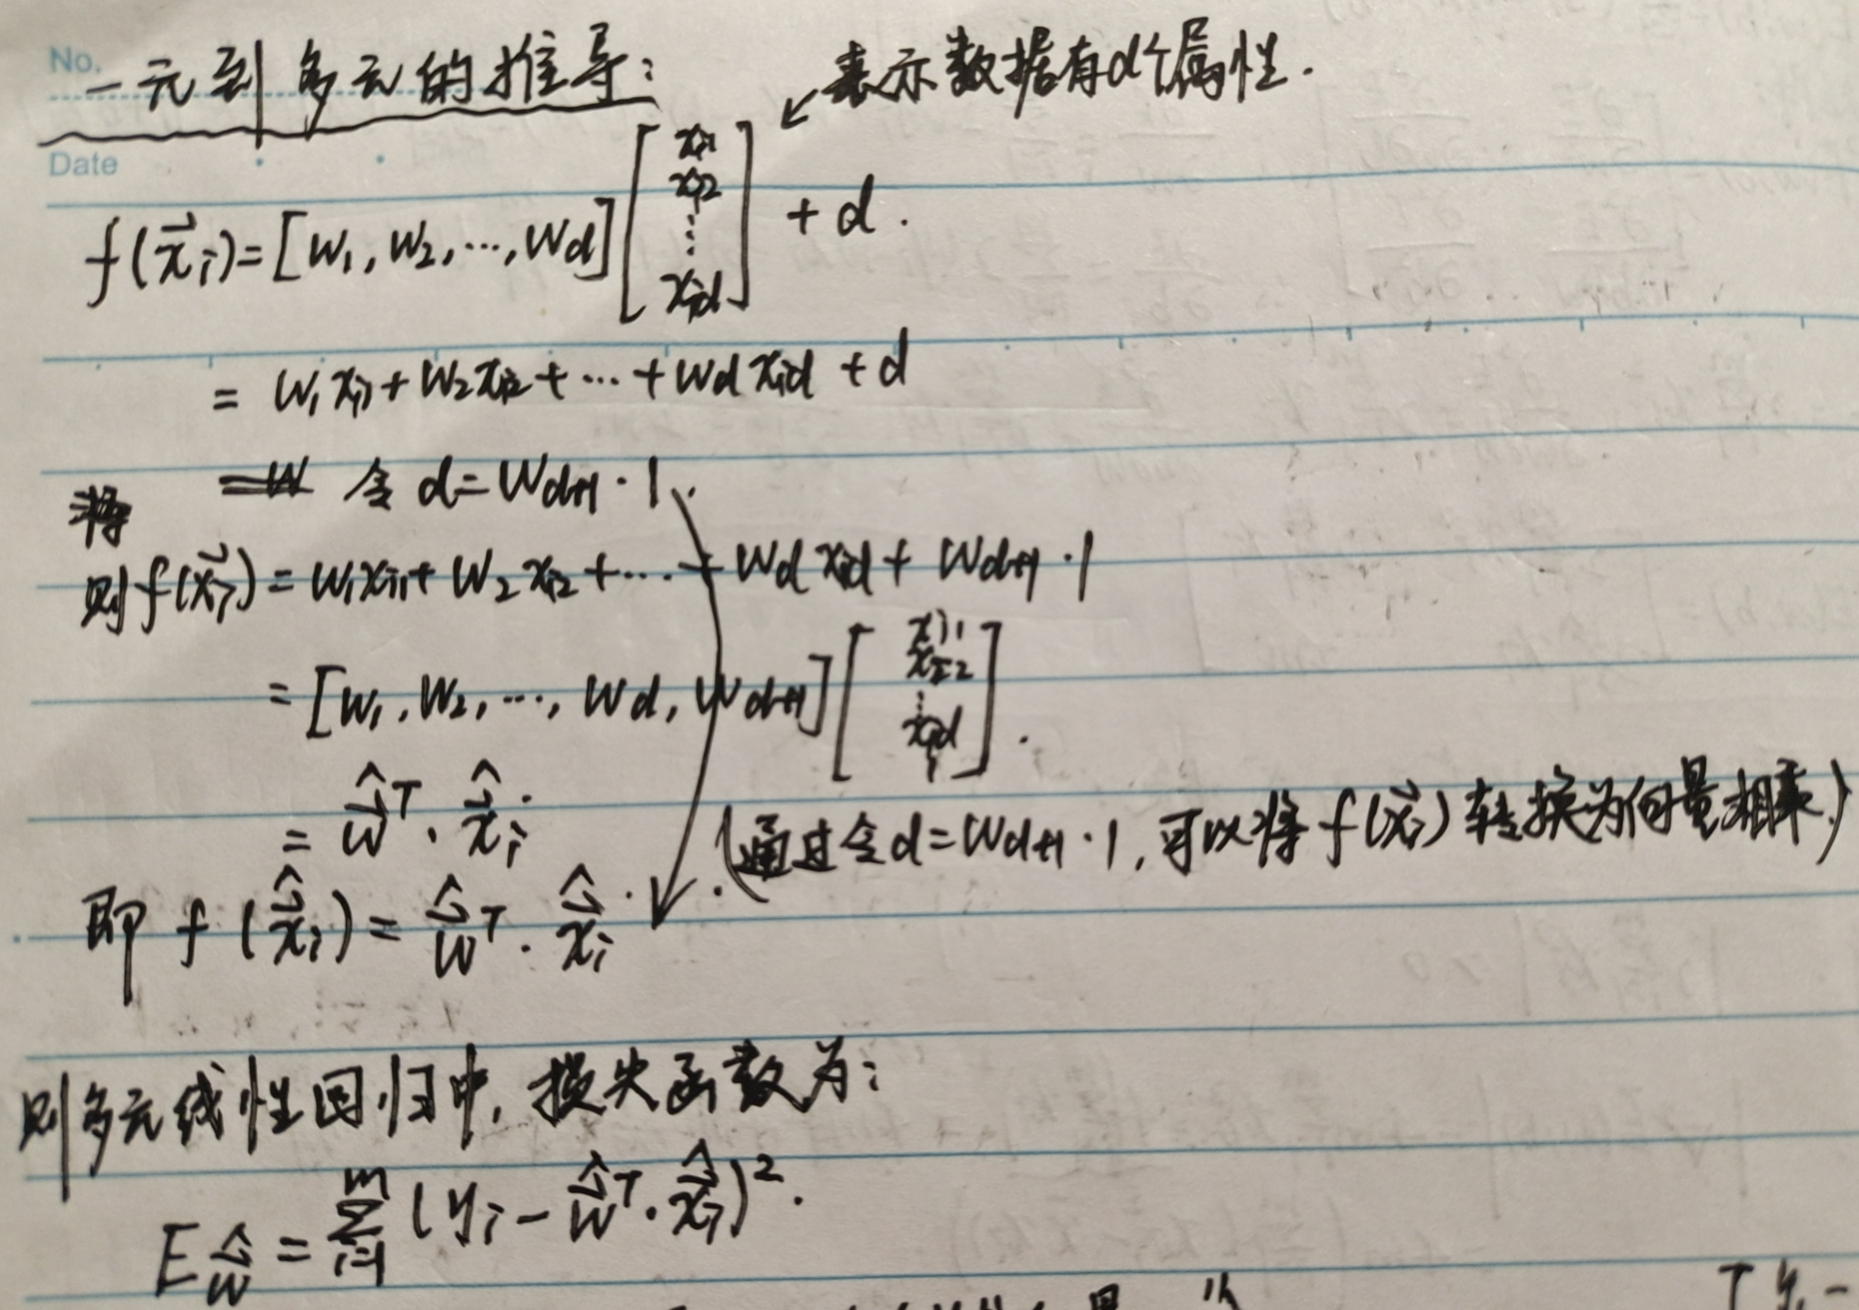 No.
一元到多元的推导:
↙ 表示数据有d个属性.
Date
f(x⃗ᵢ) = [w₁, w₂, ..., wd] [xi1 xi2 ⋮ xid] + d.
= w₁xi1 + w₂xi2 + ... + wd xid + d
令 d = wd+1 · 1.
将
则 f(x⃗ᵢ) = w₁xi1 + w₂xi2 + ... + wd xid + wd+1 · 1
= [w₁, w₂, ..., wd, wd+1] [xi1 xi2 ⋮ xid 1].
= ŵ⃗ᵀ · x̂⃗ᵢ.
(通过令d = wd+1 · 1, 可以将 f(x⃗ᵢ) 转换为向量相乘.)
即 f(x̂⃗ᵢ) = ŵ⃗ᵀ · x̂⃗ᵢ.
则多元线性回归中, 损失函数为:
E ŵ⃗ = Σᵢ₌₁ᵐ (yᵢ - ŵ⃗ᵀ · x̂⃗ᵢ)².